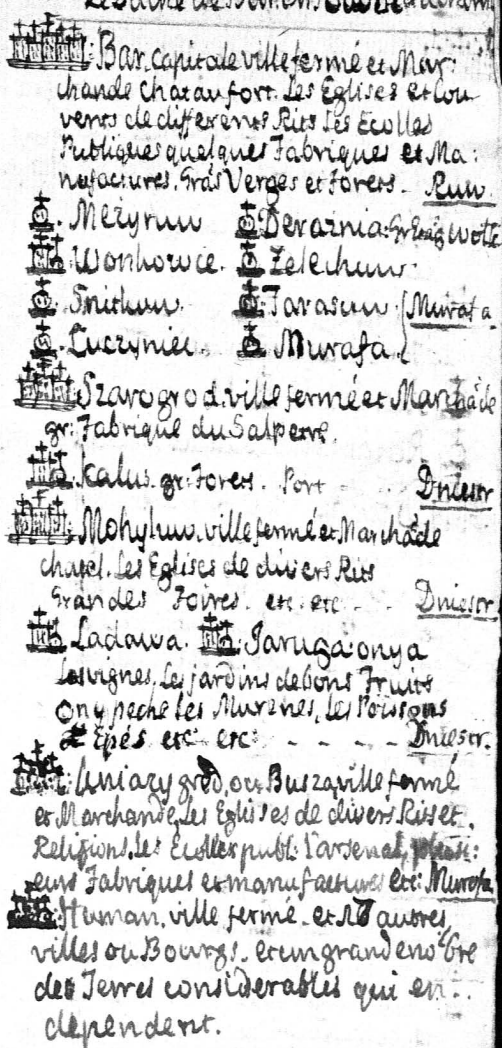 Bar, Capitale ville fermé et Mar:
chande chatau fort. Les Eglises et Cou
vents de differents Rits les Ecolles
Publiques quelques Fabriques et Ma:
nufactures. Grās Verges et Forets. Ruw.
Meżyruw Deraznia: Gr:
Wonkowce. Zelechuw.
Snitkuw. Tarascuw Murafa
Łuczyniec. Murafa.
Szarogrod. ville fermé et Marchāde
gr: Fabrique du Salpetre.
Kalus. gr: Forets. Port Dniestr
Mohyluw. ville fermé et Marchāde
chatel. Les Eglises de divers Rits
Grandes Foires. etc. etc Dniestr.
Ladawa. Jaruga on y a
les vignes, les jardins de bons Fruits
On y peche les Murenes, les Poissons
Epés etc: etc: - - - - Dniestr.
grod, ou Busza ville fermé
et Marchande, les Eglises de divers Rits et
Religions. Les Ecolles publ: l'arsenal, plusi:
eurs Fabriques et manufactures etc: Murafa
Human, ville fermé. et autres
villes ou Bourgs. et un grand enōbre
des Terres considerables qui en
dependent.